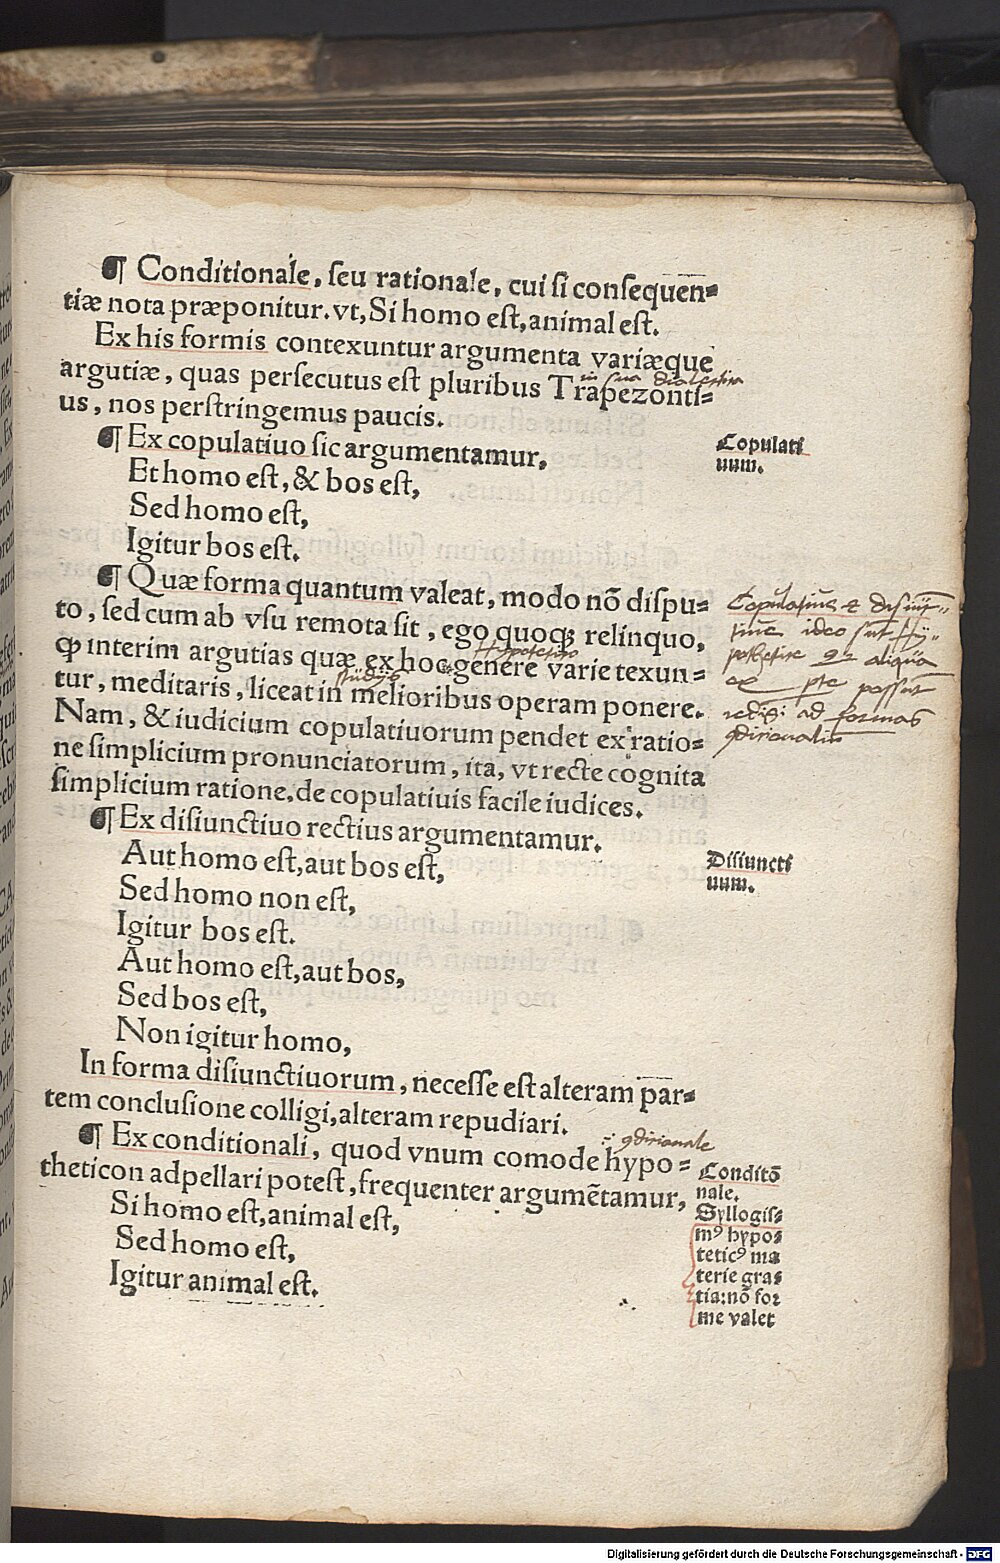 ¶ Conditionale, seu rationale, cui si consequen=
tiæ nota præponitur. vt, Si homo est, animal est.
Ex his formis contexuntur argumenta variæque
argutiæ, quas persecutus est pluribus Trapezonti=
in sua dialectica
us, nos perstringemus paucis.
¶ Ex copulatiuo sic argumentamur,
Copulati
uum.
Et homo est, & bos est,
Sed homo est,
Igitur bos est.
¶ Quæ forma quantum valeat, modo nõ dispu=
to, sed cum ab vsu remota sit, ego quoqꝫ relinquo,
ꝙ interim argutias quæ ex hoc genere varie texun=
Hypotetico
tur, meditaris, liceat in melioribus operam ponere.
studijs
Nam, & iudicium copulatiuorum pendet ex ratio=
ne simplicium pronunciatorum, ita, vt recte cognita
simplicium ratione, de copulatiuis facile iudices.
Copulatiue & disiũ=
ctiue ideo sũt hy=
potetice qa aliqua
ex pte possunt
redigi ad formas
ↄditionalis
¶ Ex disiunctiuo rectius argumentamur.
Disiuncti
uum.
Aut homo est, aut bos est,
Sed homo non est,
Igitur bos est.
Aut homo est, aut bos,
Sed bos est,
Non igitur homo,
In forma disiunctiuorum, necesse est alteram par=
tem conclusione colligi, alteram repudiari.
¶ Ex conditionali, quod vnum comode hypo=
ↄditionale
theticon adpellari potest, frequenter argumẽtamur,
Si homo est, animal est,
Sed homo est,
Igitur animal est.
Conditõ
nale.
Syllogis=
mꝰ hypo=
teticꝰ ma
terie gra=
tia: nõ for
me valet
Digitalisierung gefördert durch die Deutsche Forschungsgemeinschaft - DFG